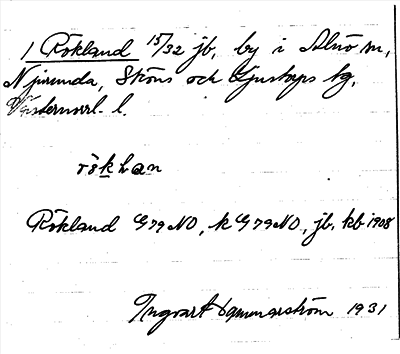 1 Rökland 15/32 jb, by i Alnö sn,
Njurunda, Sköns och Ljustorps tg,
Västernorrl. l.
rökhan
Rökland G79NO, k G79NO, jb. kb 1908
Ingvart Hammarström 1931